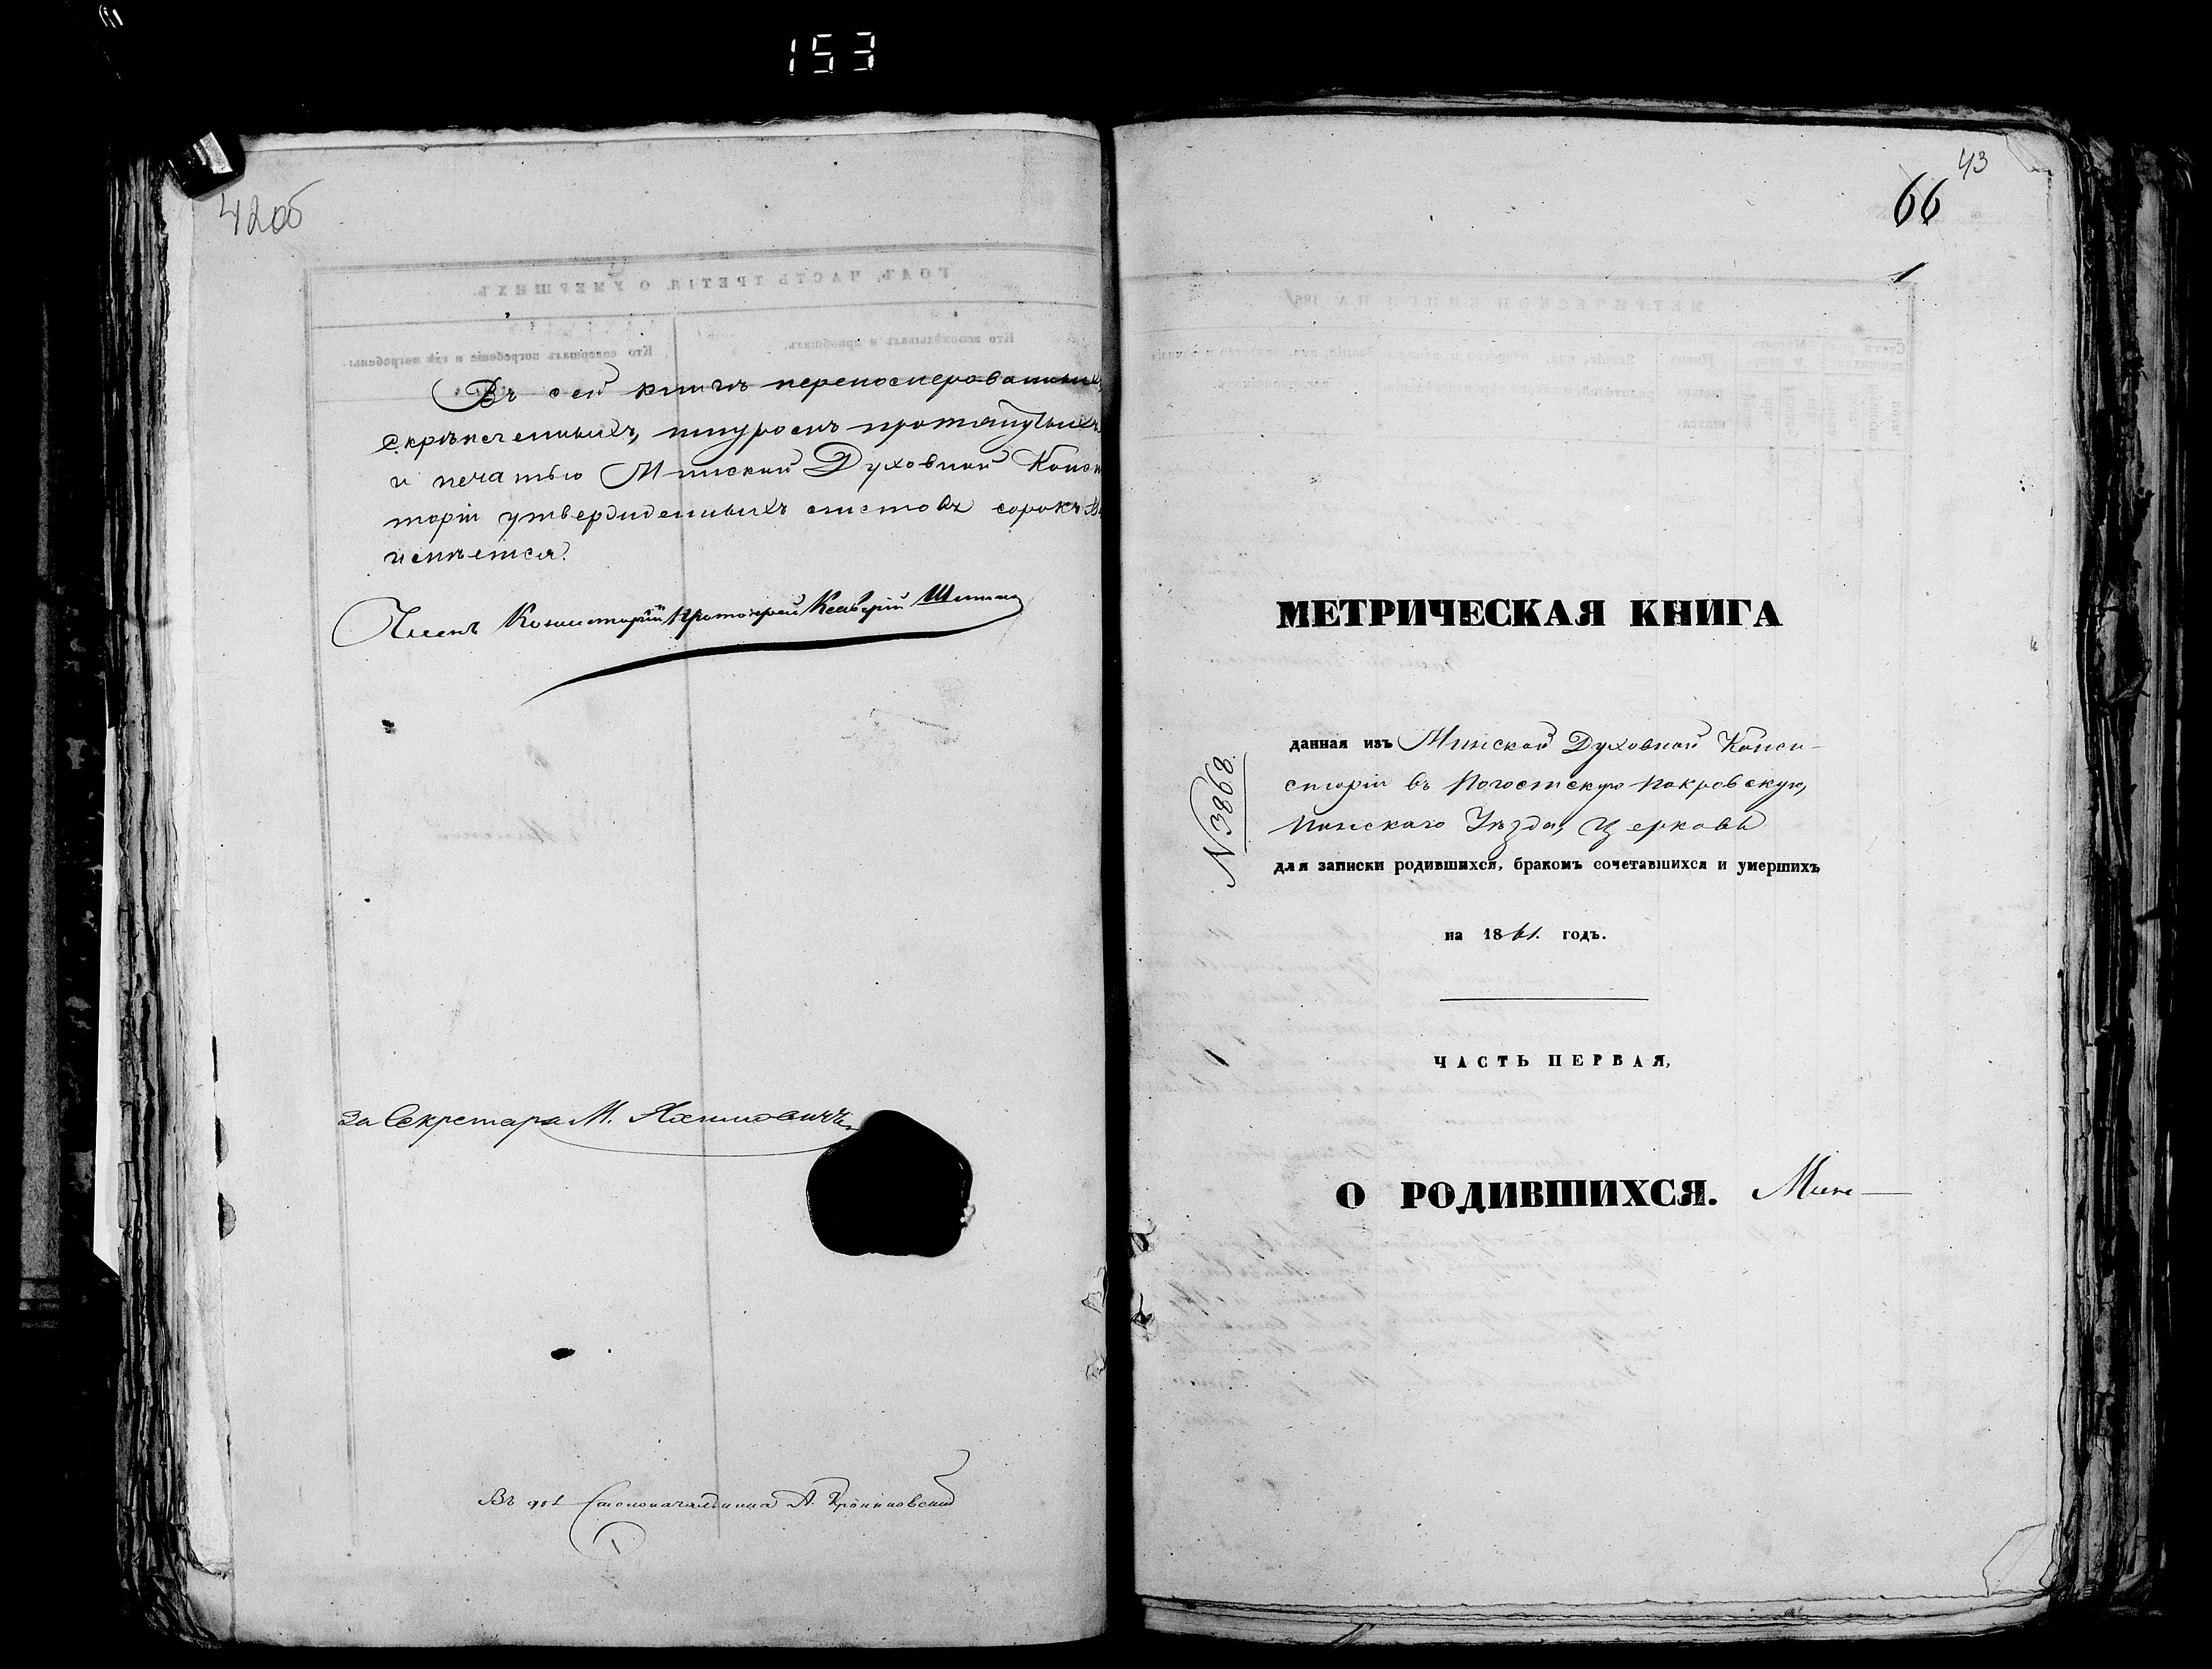 153
42об
Въ сей книгѣ переномерованныхъ,
скрѣпленныхъ, шнуромъ протянутыхъ
и печатью Минской Духовной Конси
торіи утвержденныхъ листовъ сорокъ
имѣется.
Членъ Консисторіи Протоіерей
За Секретаря М.
Въ Столоначальника А.
43
66
1
МЕТРИЧЕСКАЯ КНИГА
данная изъ Минской Духовной Конси-
сторіи въ Погостскую Покровскую,
Пинскаго Уѣзда, Церковь
№ 3868.
для записки родившихся, бракомъ сочетавшихся и умершихъ
на 1861. годъ.
ЧАСТЬ ПЕРВАЯ,
О РОДИВШИХСЯ.